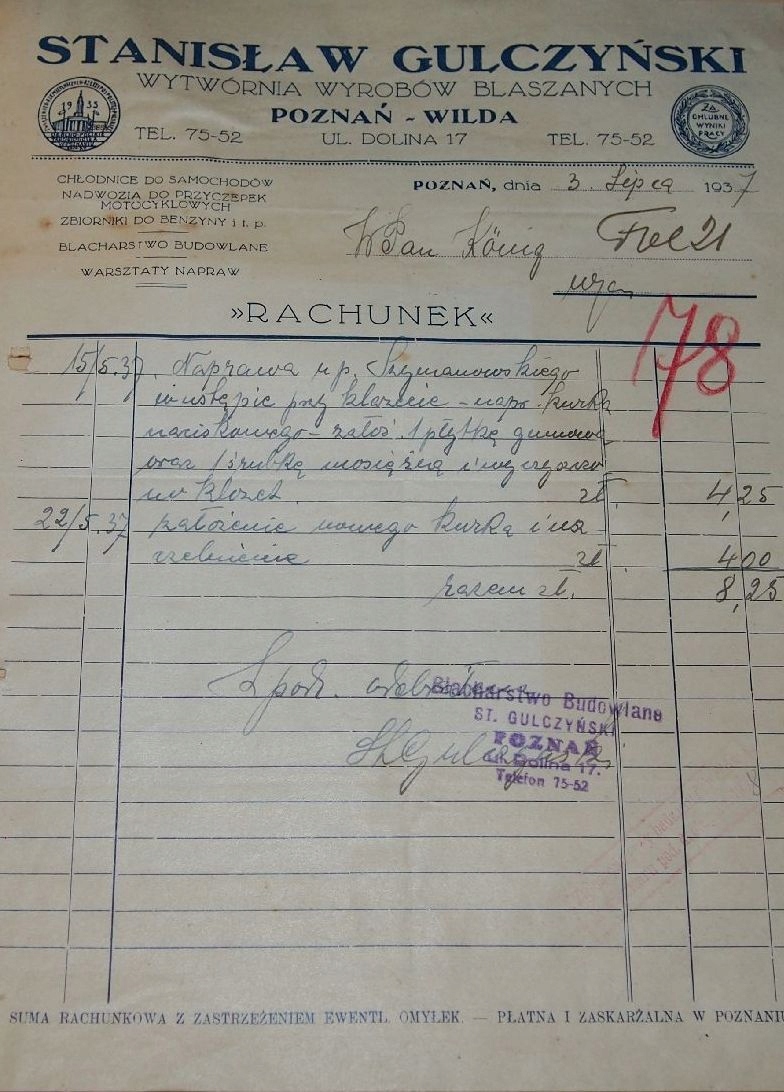 STANISŁAW GULCZYŃSKI
WYTWÓRNIA WYROBÓW BLASZANYCH
POZNAŃ - WILDA
TEL. 75-52 UL. DOLINA 17 TEL. 75-52
1935
ZA CHLUBNE WYNIKI PRACY
CHŁODNICE DO SAMOCHODÓW
NADWOZIA DO PRZYCZEPEK
MOTOCYKLOWYCH
ZBIORNIKI DO BENZYNY i t. p.
BLACHARSTWO BUDOWLANE
WARSZTATY NAPRAW
POZNAŃ, dnia 3. Lipca 1937
WPan König
»RACHUNEK«
78
15/5.37. Naprawa u p. Szymanowskiego
w ustępie przy klozecie - napr. kurka
naciskowego - założ. 1 płytkę gumową
oraz 1 śrubkę mosiężną i
no klozet. zł. 4,25
22/5.37 założenie nowego kurka i usz-
czelnienie zł 4 00
razem zł. 8,25
Z pod.
St. Gulczyński
Blacharstwo Budowlane
ST. GULCZYŃSKI
POZNAŃ
ul. Dolina 17.
Telefon 75-52
SUMA RACHUNKOWA Z ZASTRZEŻENIEM EWENTL. OMYŁEK. — PŁATNA I ZASKARŻALNA W POZNANIU